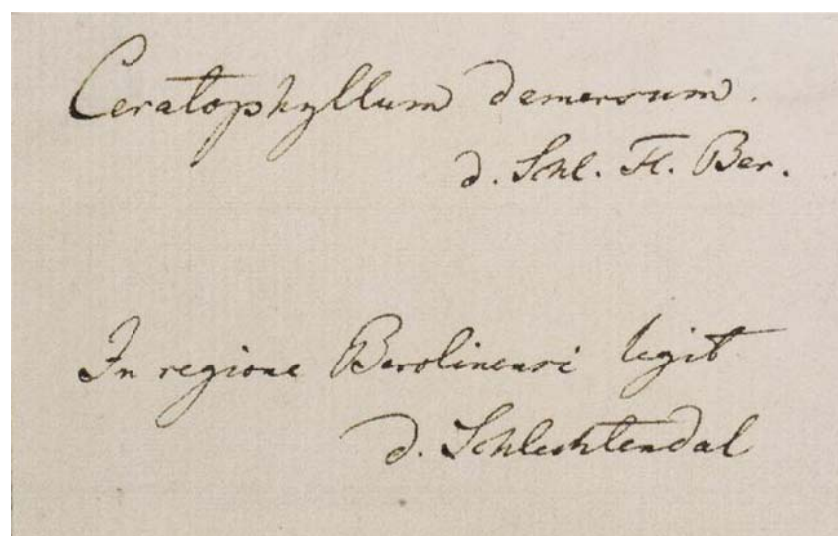 Ceratophyllum demersum.
d. Schl. Fl. Ber.
In regione Berolinensi legit
d. Schlechtendal